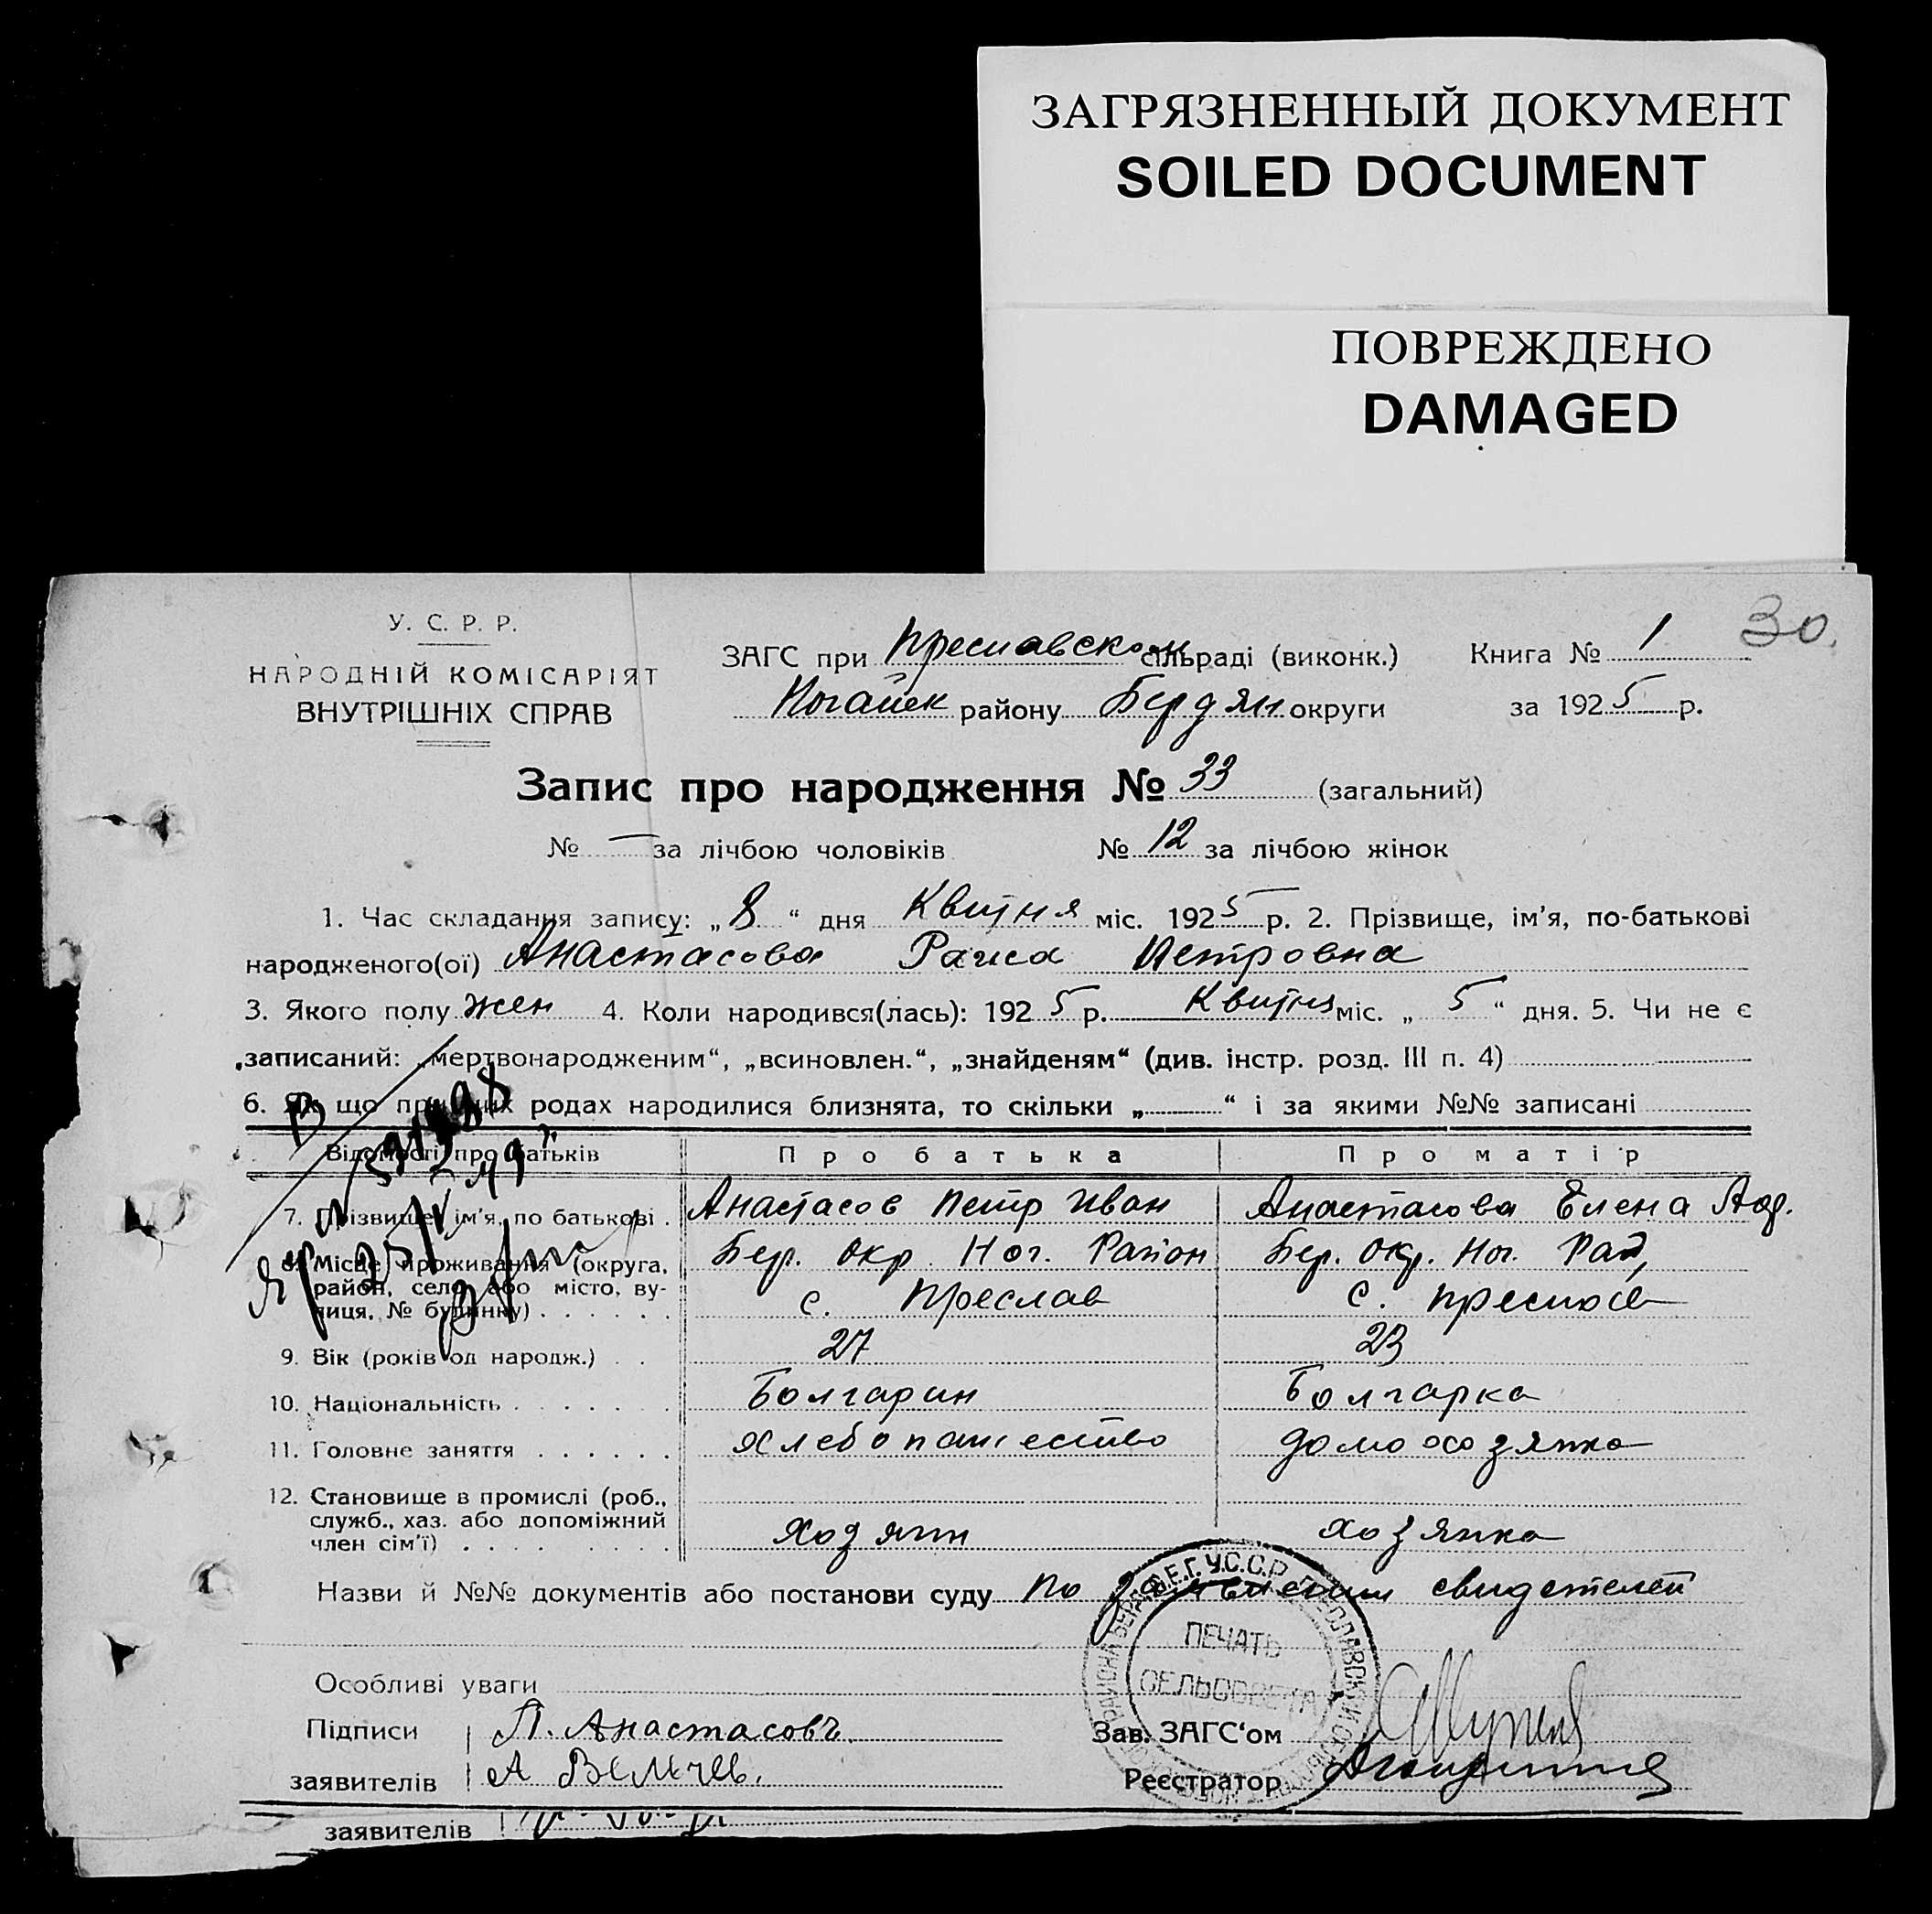 ЗАГРЯЗНЕННЫЙ ДОКУМЕНТ
SOILED DOCUMENT
ПОВРЕЖДЕНО
DAMAGED
30.
У. С. Р. Р.
НАРОДНІЙ КОМІСАРІЯТ
ВНУТРІШНІХ СПРАВ
ЗАГС при Преславском сільраді (виконк.) Книга № 1
Ногайск району Бердян округи за 1925 р.
Запис про народження № 33 (загальний)
№ — за лічбою чоловіків № 12 за лічбою жінок
1. Час складання запису: „8“ дня Квитня міс. 1925 р. 2. Прізвище, ім'я, по-батькові
народженого(ої) Анастасова Раиса Петровна
3. Якого полу жен 4. Коли народився(лась): 1925 р. Квитня міс. „5“ дня. 5. Чи не є
записаний: „мертвонародженим“, „всиновлен.“, „знайденям“ (див. інстр. розд. III п. 4)
6. Як що при цих родах народилися близнята, то скільки „ “ і за якими №№ записані
Відомості про батьків Про батька Про матір
7. Прізвище, ім'я, по батькові Анастасов Петр Иван Анастасова Елена Анд.
8. Місце проживання (округа, район, село або місто, вулиця, № будинку) Бер. окр. Ног. Район Бер. Окр. Ног. Рай,
с. Преслав с. Преслов
9. Вік (років од народж.) 27 23
10. Національність Болгарин Болгарка
11. Головне заняття Хлебопашество домохозяйка
12. Становище в промислі (роб., служб., хаз. або допоміжний член сім'ї) Хозяин хозяйка
Назви й №№ документів або постанови суду по заявлению свидетелей
ПЕЧАТЬ
СЕЛЬСОВЕТА
Особливі уваги
Підписи П. Анастасовъ Зав. ЗАГС'ом
заявителів А Величев. Реєстратор
заявителів